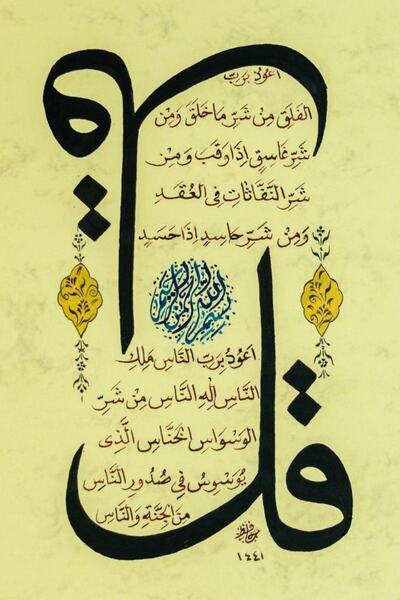 قل
اعوذ بربّ
الفلق مِنْ شَرِّ مَا خَلَقَ وَمِنْ
شَرِّ غَاسِقٍ اِذَا وَقَبَ وَمِنْ
شَرِّ النَّفَّاثَاتِ فِي العُقَدِ
وَمِنْ شَرِّ حَاسِدٍ اِذَا حَسَدَ
بسم الله الرحمن الرحيم
قل
اعوذ بِرَبِّ النَّاسِ مَلِكِ
النَّاسِ اِلهِ النَّاسِ مِنْ شَرِّ
الوَسْوَاسِ الخَنَّاسِ الَّذِي
يُوَسْوِسُ فِي صُدُورِ النَّاسِ
مِنَ الجِنَّةِ وَالنَّاسِ
١٤٤١